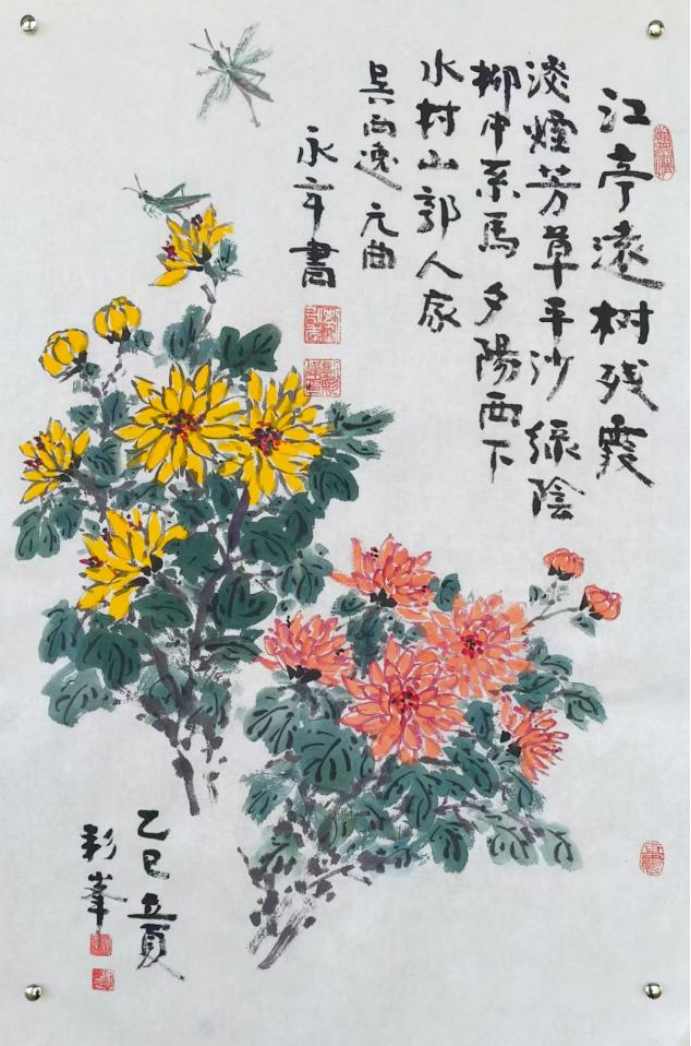 江亭遠树残霞
淡煙芳草平沙 绿陰
柳中系馬 夕陽西下
水村山郭人家
吴西逸 元曲
永年書
乙巳立夏
彩峯